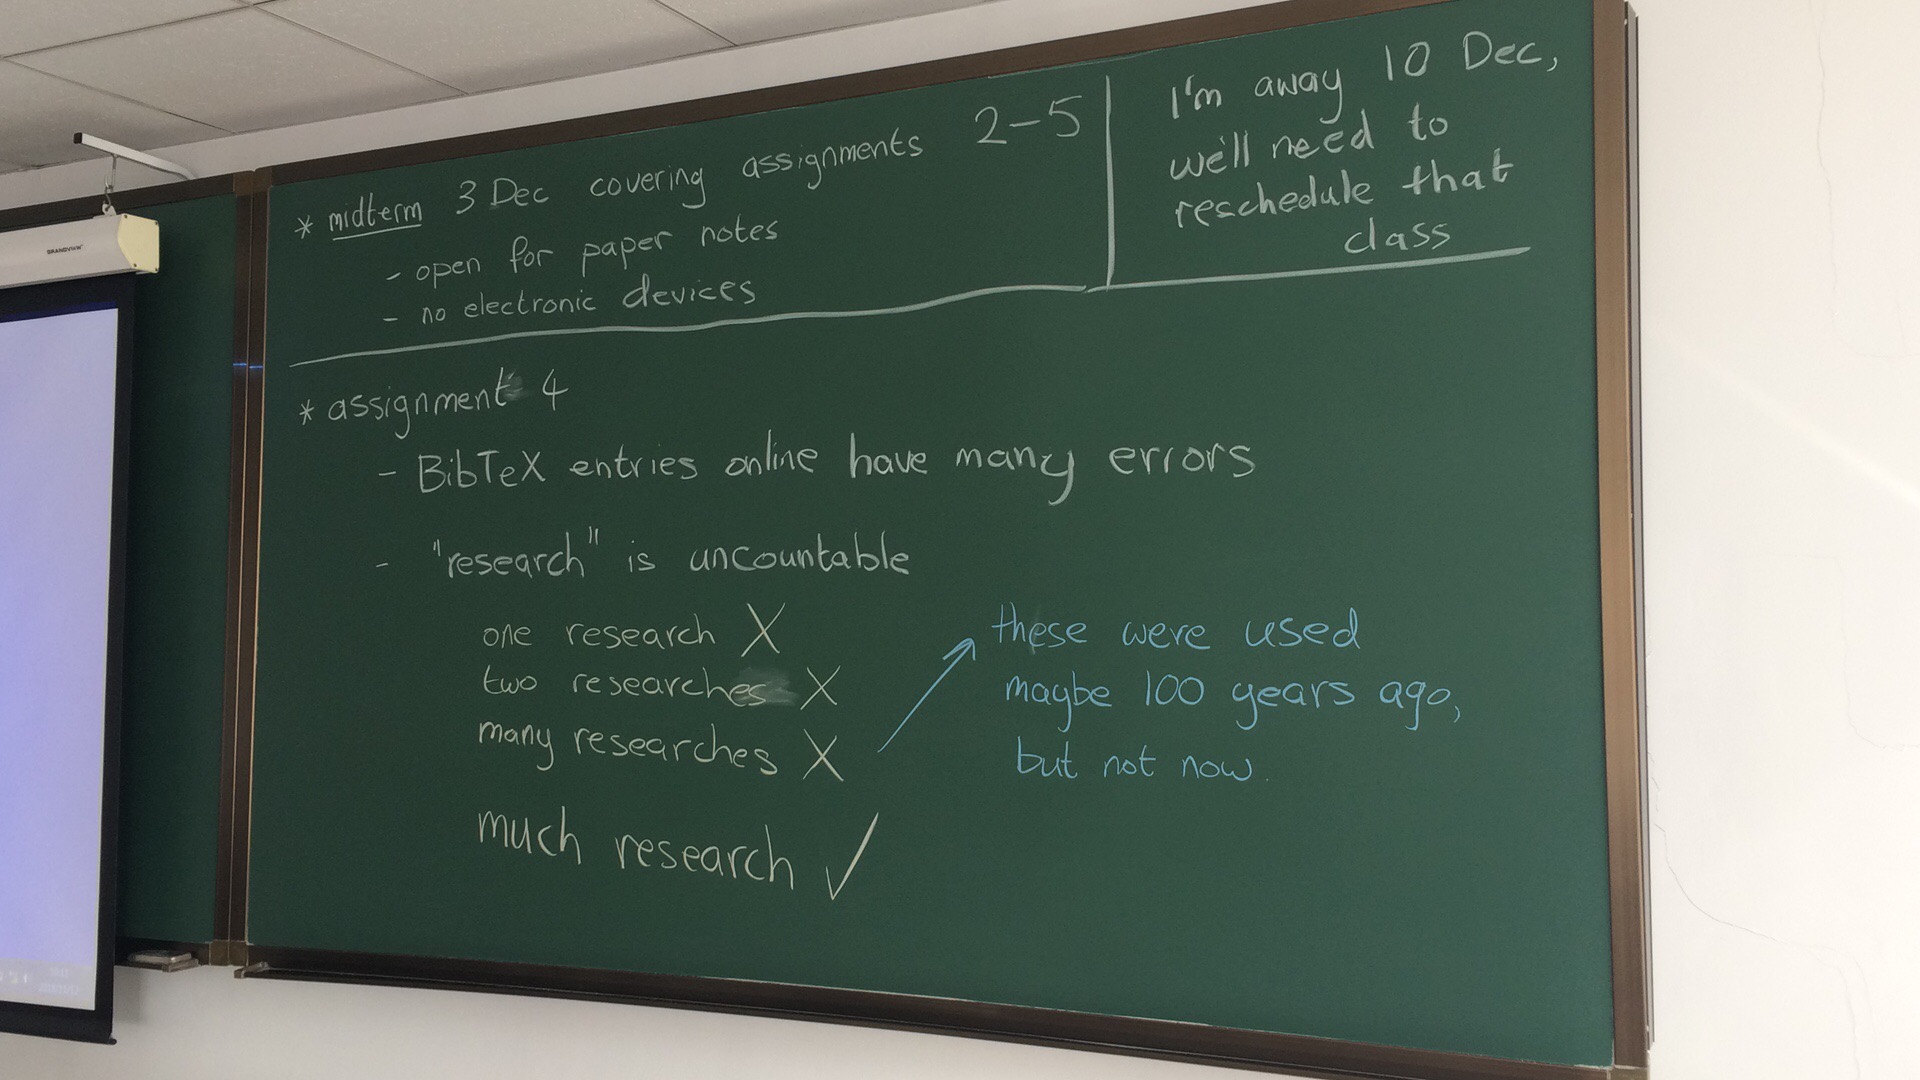 * midterm 3 Dec covering assignments 2-5
- open for paper notes
- no electronic devices
I'm away 10 Dec,
we'll need to
reschedule that
class
* assignment 4
- BibTeX entries online have many errors
- "research" is uncountable
one research X
two researches X
many researches X
much research ✓
these were used
maybe 100 years ago,
but not now.
GRANDVIEW